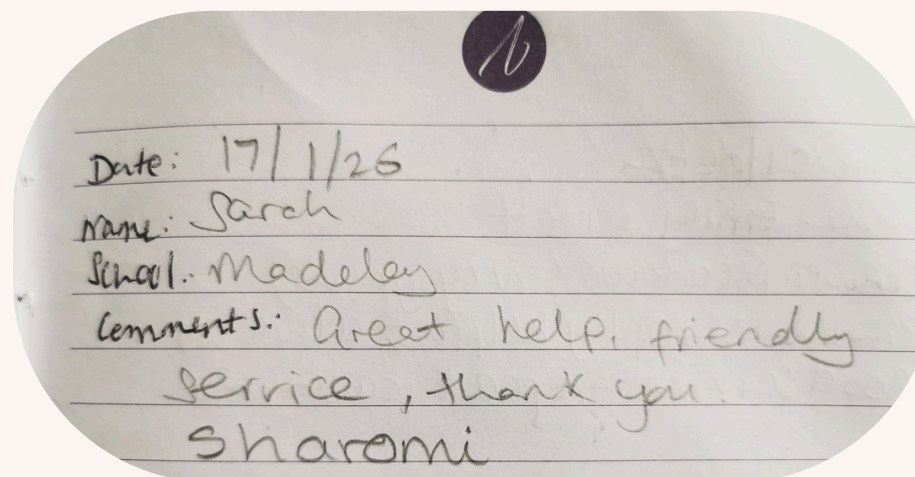 Date: 17/1/26
Name: Sarah
School: Madeley
Comments: Great help, friendly
service, thank you.
Sharomi